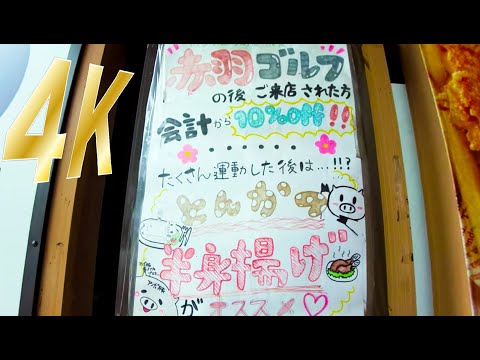 4K
赤羽ゴルフ
の後 ご来店 された方
会計から10%off!!
・・・・・・
たくさん運動した後は…!!?
とんかつ
半身揚げ
が オススメ